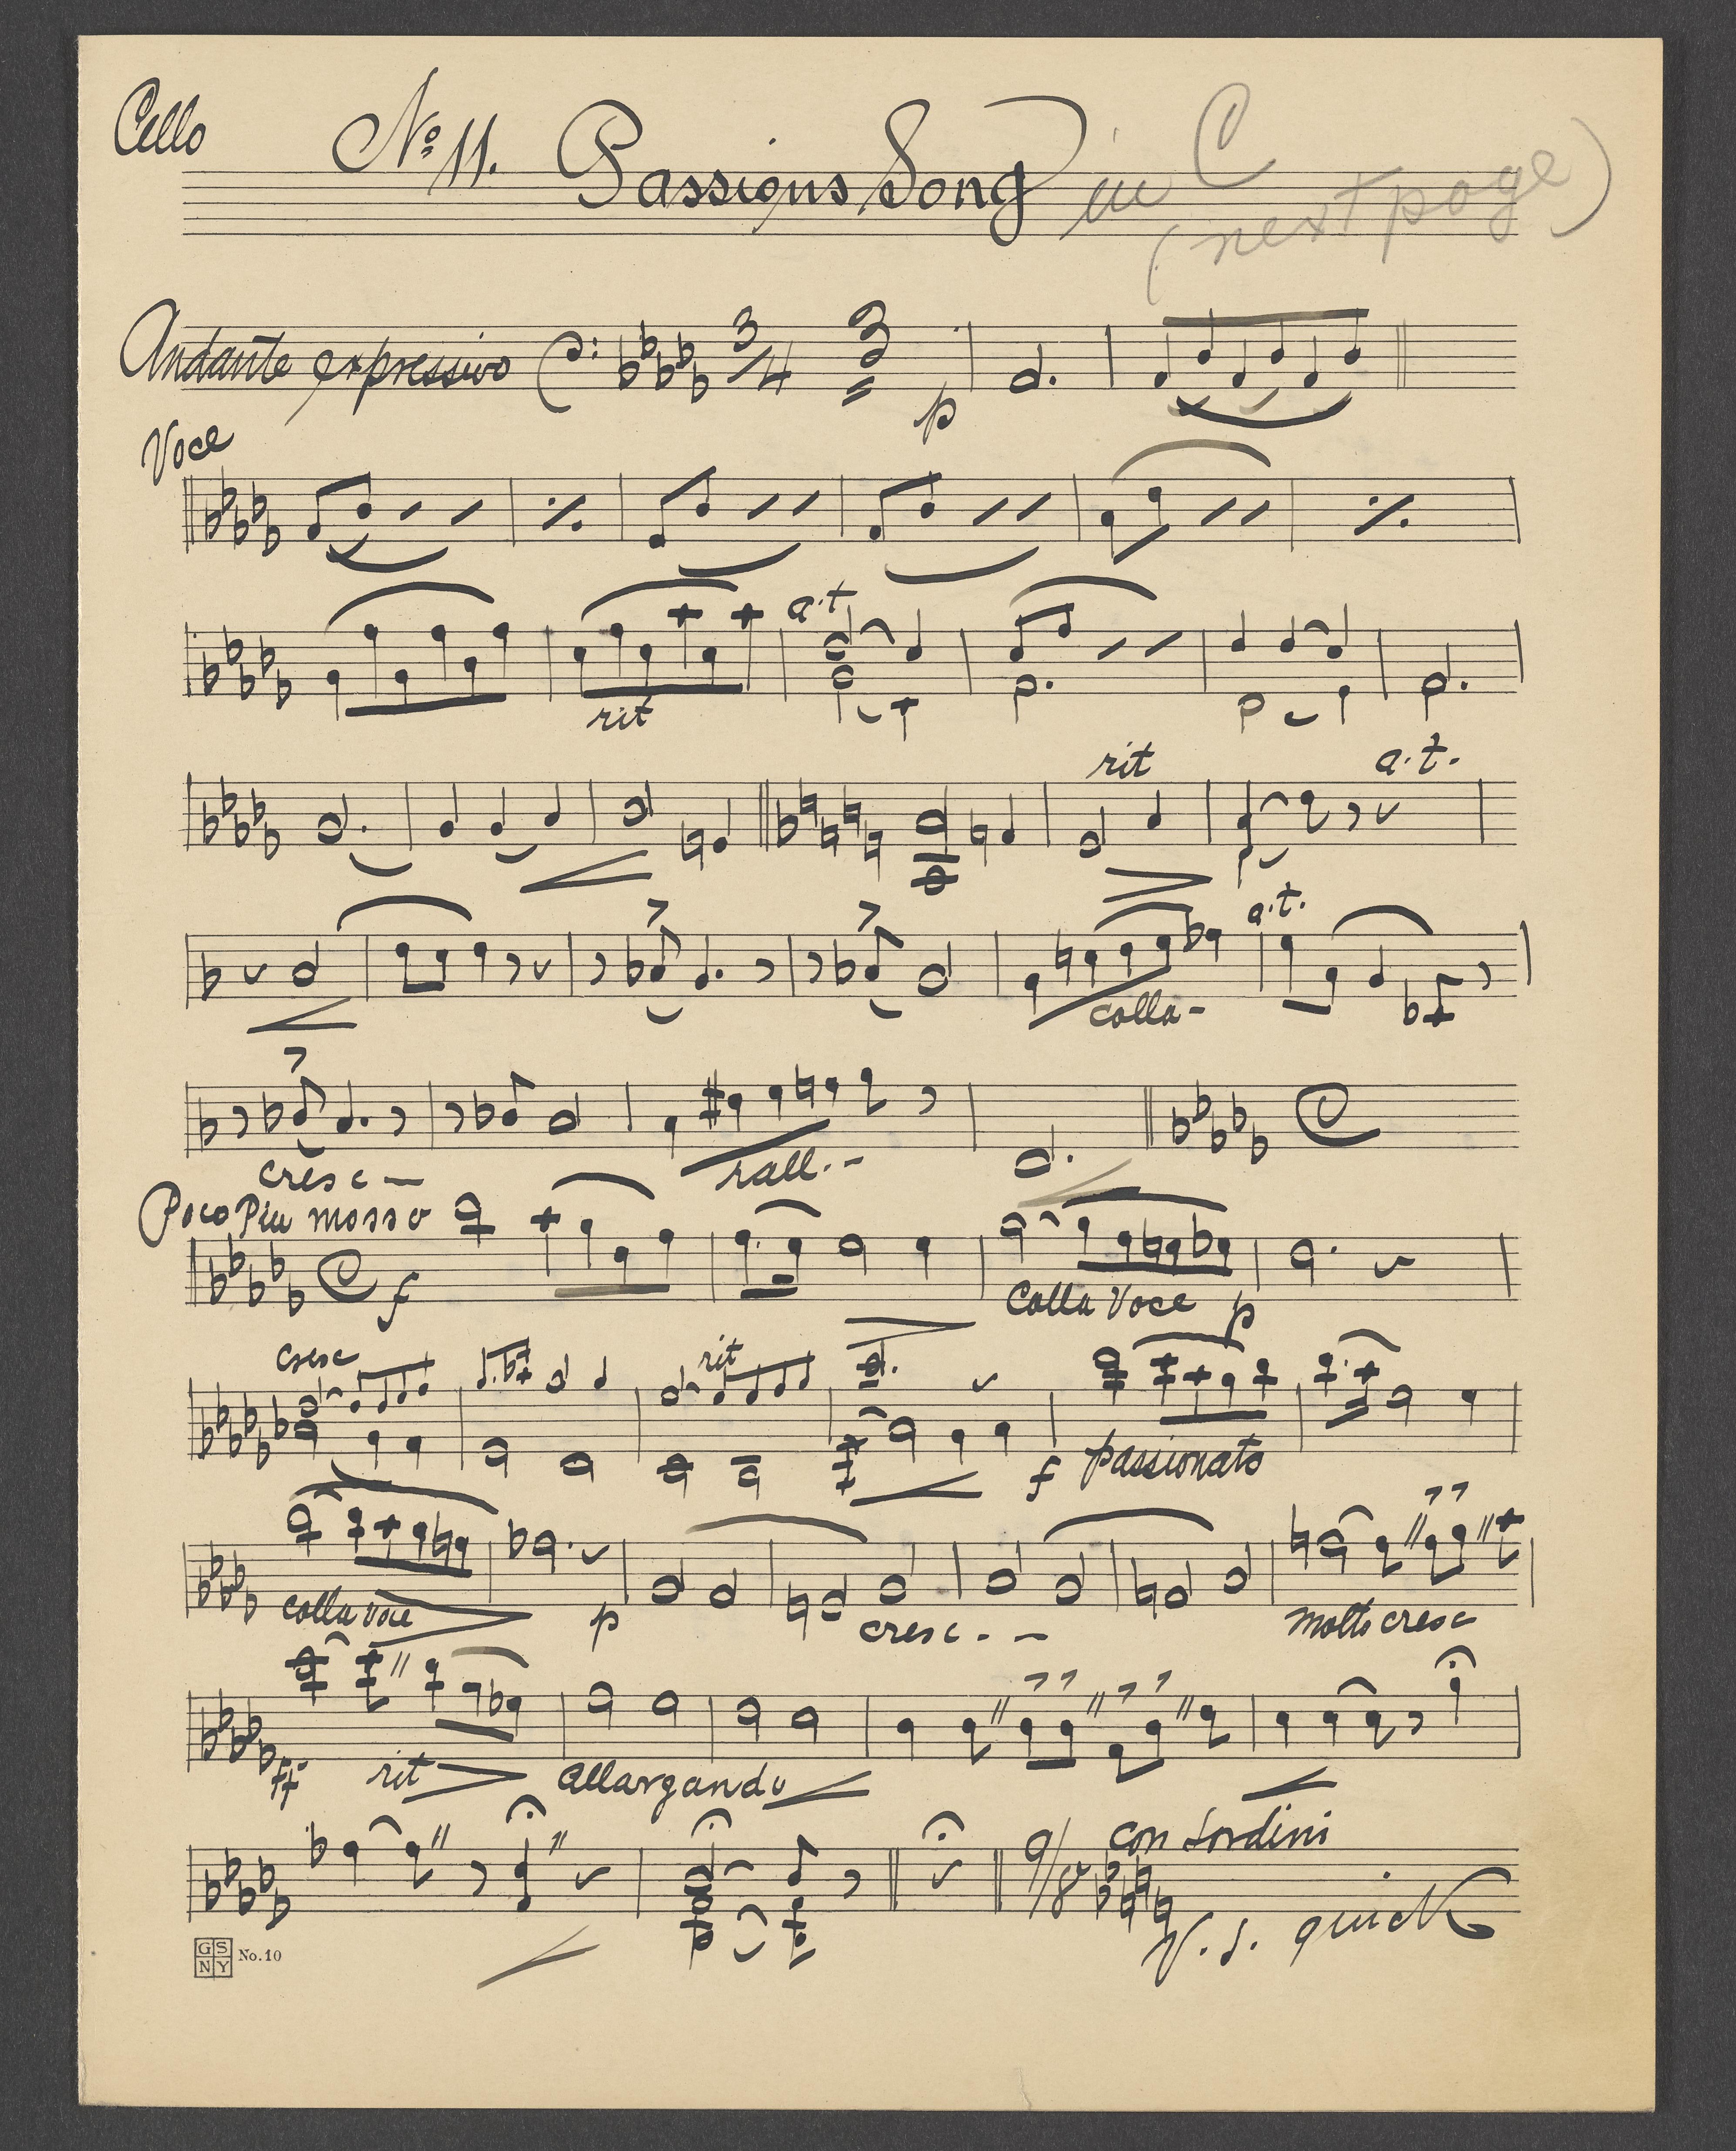 Cello Nº 11. Passions Song in C
(next page)
Andante expressivo 3/4 3 p
Voce
a.t
rit
rit a.t.
a.t.
colla-
cresc- rall.--
Poco Piu mosso
C f Colla Voce p
cresc rit
f passionato
colla voce p cresc-- molto cresc
ff rit allargando
9/8 con sordini
V. S. quick
GSNY No. 10